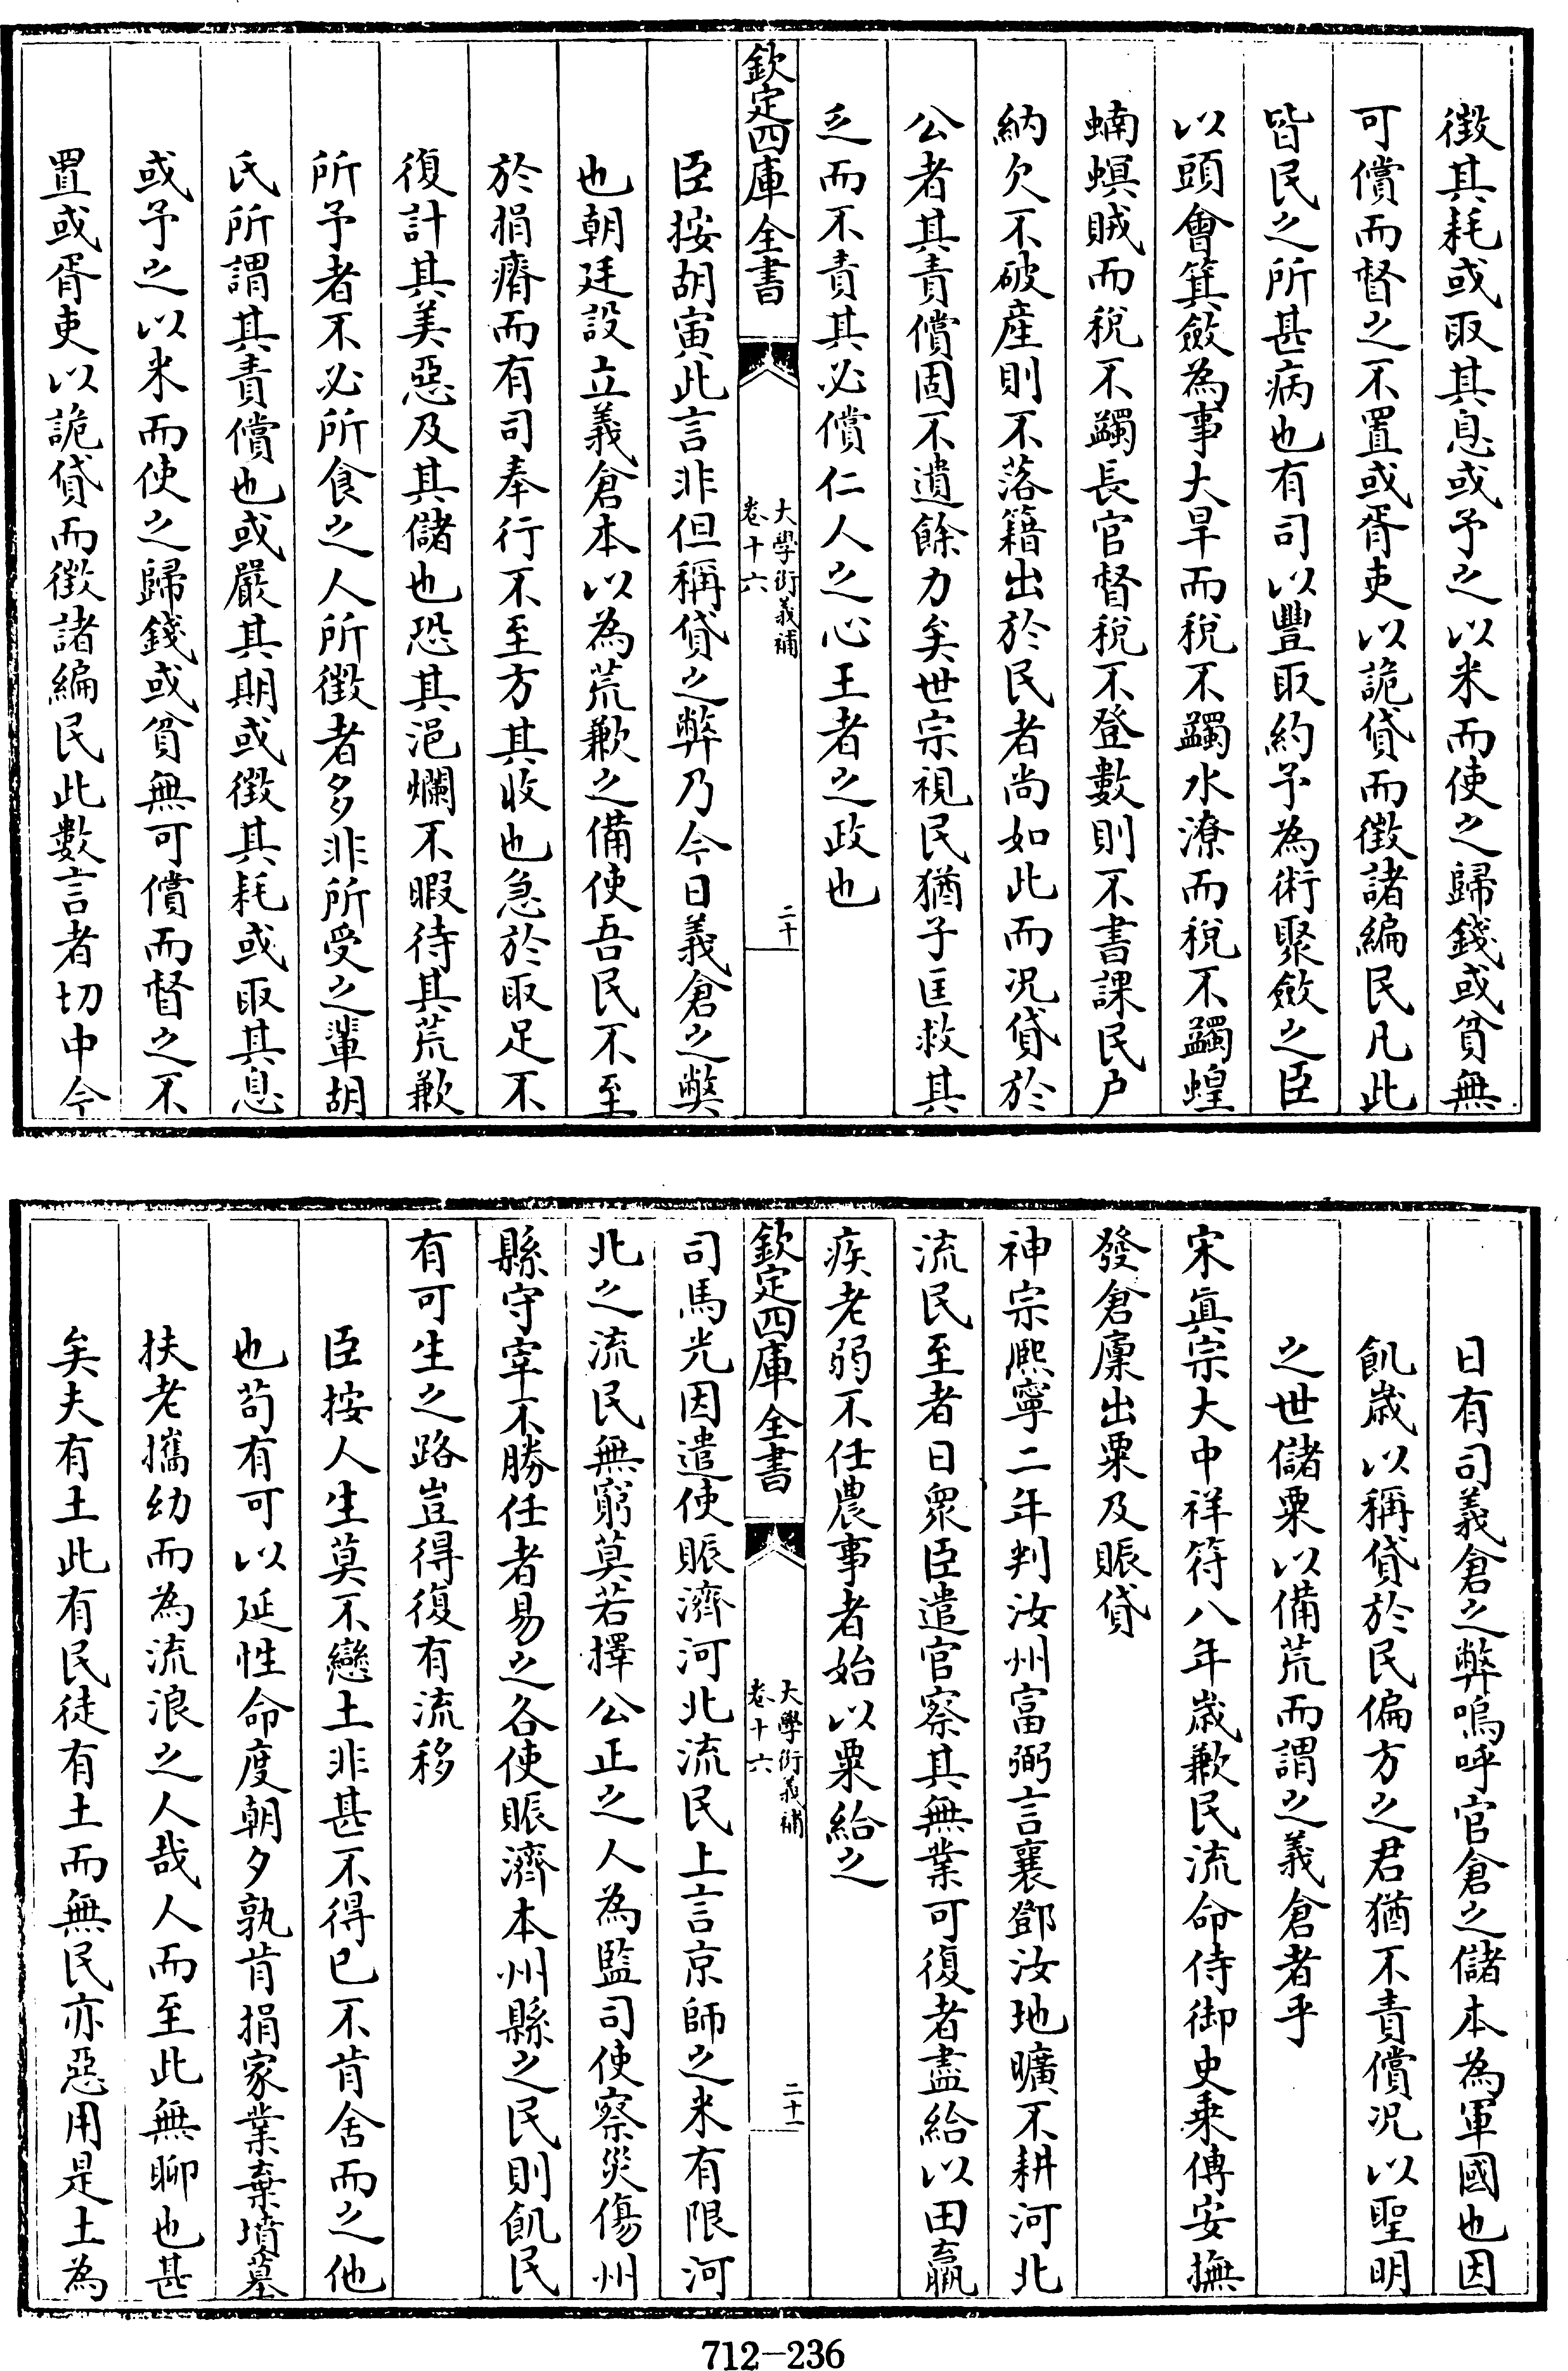 徴其耗或取其息或予之以米而使之歸錢或貧無
可償而督之不置或胥吏以詭貸而徴諸編民凡此
皆民之所甚病也有司以豐取約予為術聚斂之臣
以頭會箕斂為事大旱而税不蠲水潦而税不蠲蝗
蝻螟賊而税不蠲長官督税不登數則不書課民户
納欠不破産則不落籍出於民者尚如此而况貸於
公者其責償固不遺餘力矣世宗視民猶子匡救其
乏而不責其必償仁人之心王者之政也
欽定四庫全書
大學衍義補
卷十六
二十
臣按胡寅此言非但稱貸之弊乃今日義倉之獘
也朝廷設立義倉本以為荒歉之備使吾民不至
於捐瘠而有司奉行不至方其收也急於取足不
復計其美惡及其儲也恐其浥爛不暇待其荒歉
所予者不必所食之人所徴者多非所受之輩胡
氏所謂其責償也或嚴其期或徴其耗或取其息
或予之以米而使之歸錢或貧無可償而督之不
置或胥吏以詭貸而徴諸編民此數言者切中今
日有司義倉之弊嗚呼官倉之儲本為軍國也因
飢歲以稱貸於民偏方之君猶不責償况以聖明
之世儲粟以備荒而謂之義倉者乎
宋真宗大中祥符八年歲歉民流命侍御史乗傳安撫
發倉廩出粟及賑貸
神宗熈寧二年判汝州富弼言襄鄧汝地曠不耕河北
流民至者日衆臣遣官察其無業可復者盡給以田羸
疾老弱不任農事者始以粟給之
欽定四庫全書
大學衍義補
卷十六
二十一
司馬光因遣使賑濟河北流民上言京師之米有限河
北之流民無窮莫若擇公正之人為監司使察災傷州
縣守宰不勝任者易之各使賑濟本州縣之民則飢民
有可生之路豈得復有流移
臣按人生莫不戀土非甚不得已不肯舍而之他
也茍有可以延性命度朝夕孰肯捐家業棄墳墓
扶老攜幼而為流浪之人哉人而至此無聊也甚
矣夫有土此有民徒有土而無民亦惡用是土為
712-236